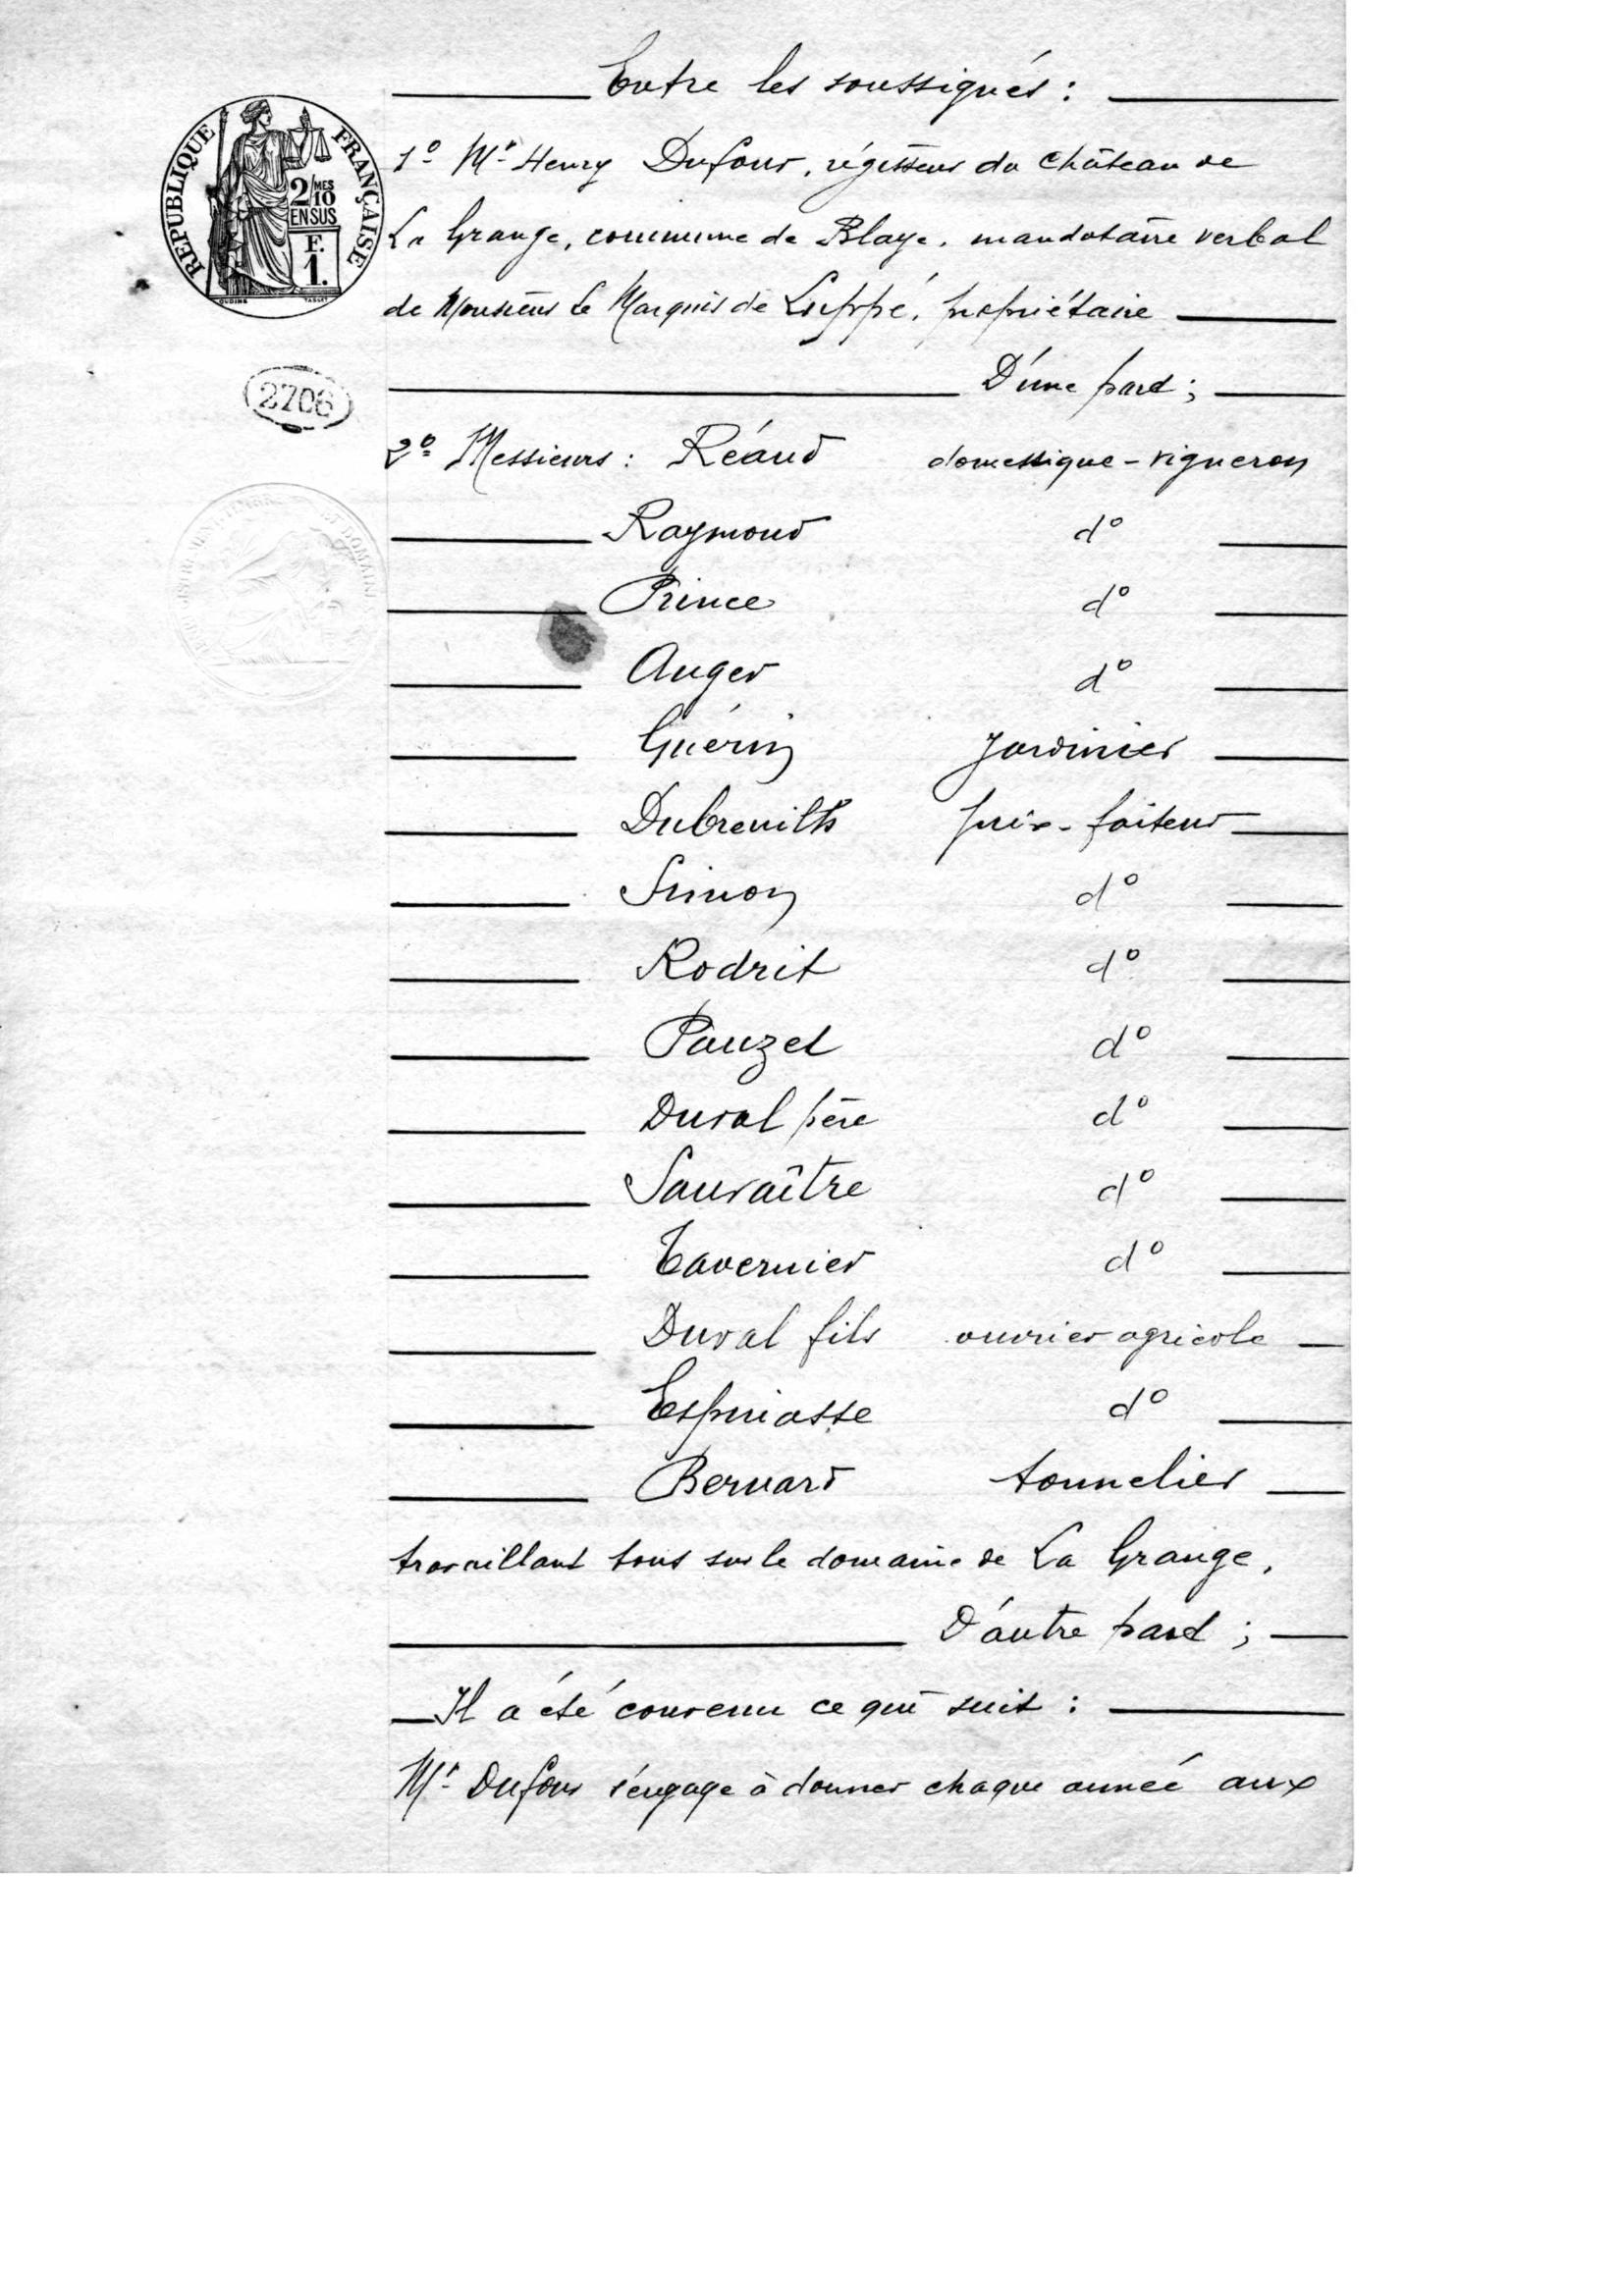 Entre les soussignés :
RÉPUBLIQUE FRANÇAISE
2/MES
10
EN SUS
F.
1.
1º Mr Henry Dufour, régisseur du Château de
La Grange, commune de Blaye, mandataire verbal
de Monsieur le Marquis de Luppé, propriétaire
D'une part ;
2706
2º Messieurs : Réaud domestique - vigneron
Raymond dº
Prince dº
Auger dº
Guérin Jardinier
Dubreuilh prix-faiteur
Simon dº
Rodrit dº
Pauzet dº
Duval père dº
Sauvaître dº
Tavernier dº
Duval fils ouvrier agricole
Espinasse dº
Bernard tonnelier
travaillant tous sur le domaine de La Grange,
D'autre part ;
Il a été convenu ce qui suit :
Mr Dufour s'engage à donner chaque année aux